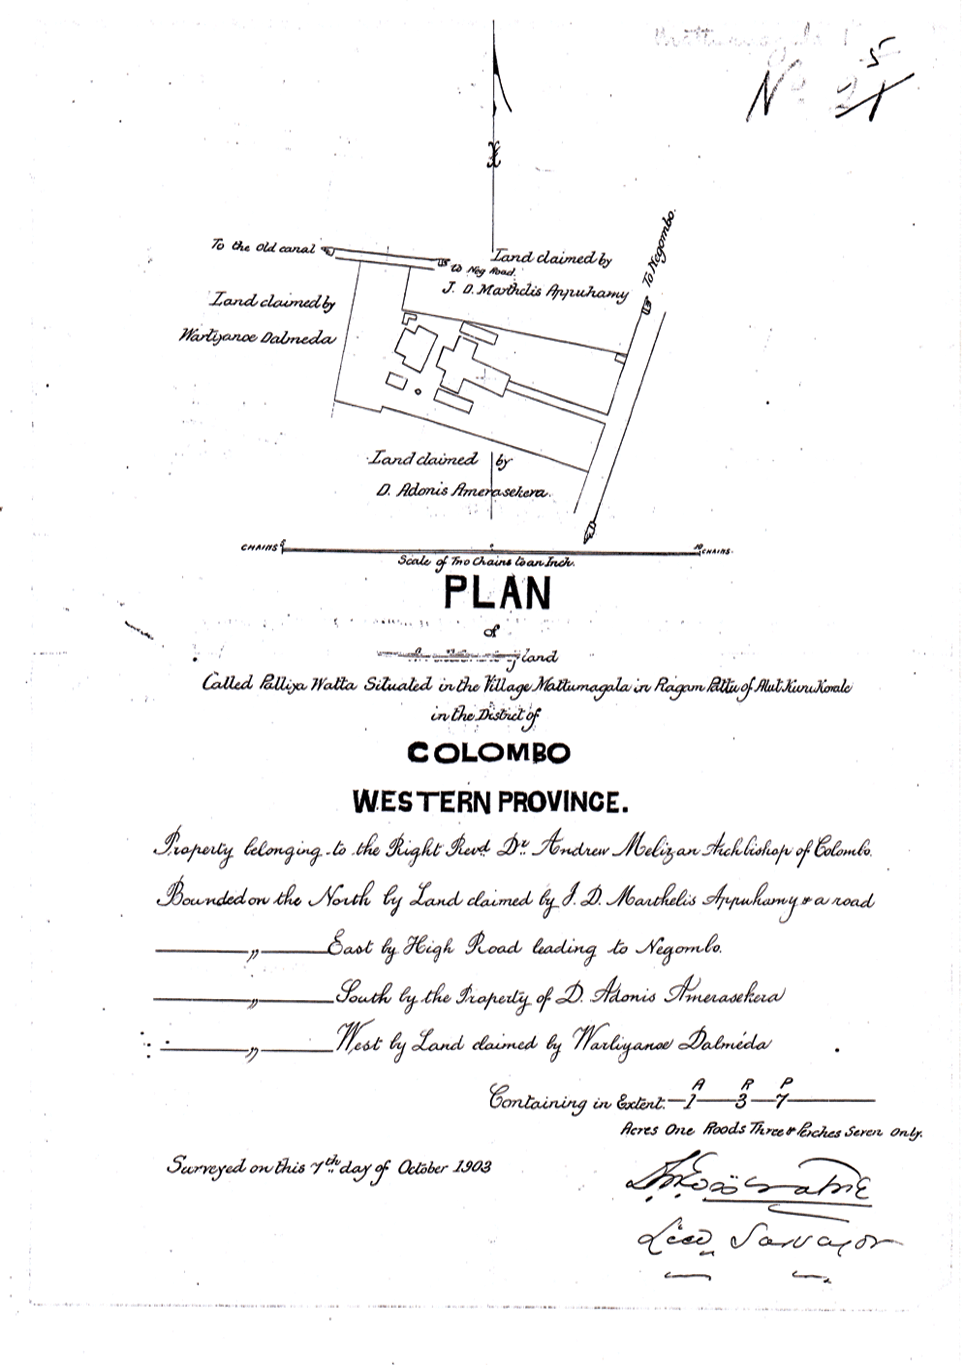 No
5
To the Old canal
to Neg Road.
Land claimed by
J. D. Marthelis Appuhamy
To Negombo.
Land claimed by
Warliyanoe Dalmeda
Land claimed by
D. Adonis Amerasekera.
CHAINS 5
10 CHAINS.
Scale of Two Chains to an Inch.
PLAN
of
land
Called Palliya Watta Situated in the Village Mattumagala in Ragam Pattu of Alut Kuru Korale
in the District of
COLOMBO
WESTERN PROVINCE.
Property belonging to the Right Revd. Dr. Andrew Melizan Archbishop of Colombo.
Bounded on the North by Land claimed by J. D. Marthelis Appuhamy & a road
„ East by High Road leading to Negombo.
„ South by the Property of D. Adonis Amerasekera
„ West by Land claimed by Warliyanoe Dalméda
A R P
Containing in Extent. 1 3 7
Acres One Roods Three & Perches Seven Only.
Surveyed on this 7th day of October 1903